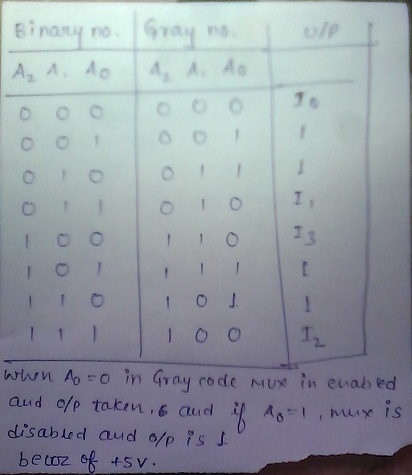 Binary no. Gray no. O/P
A2 A1 A0 A2 A1 A0
0 0 0 0 0 0 I0
0 0 1 0 0 1 1
0 1 0 0 1 1 1
0 1 1 0 1 0 I1
1 0 0 1 1 0 I3
1 0 1 1 1 1 1
1 1 0 1 0 1 1
1 1 1 1 0 0 I2
when A0=0 in Gray code mux in enabled
and o/p taken, & and if A0=1, mux is
disabled and o/p is 1
becoz of +5V.